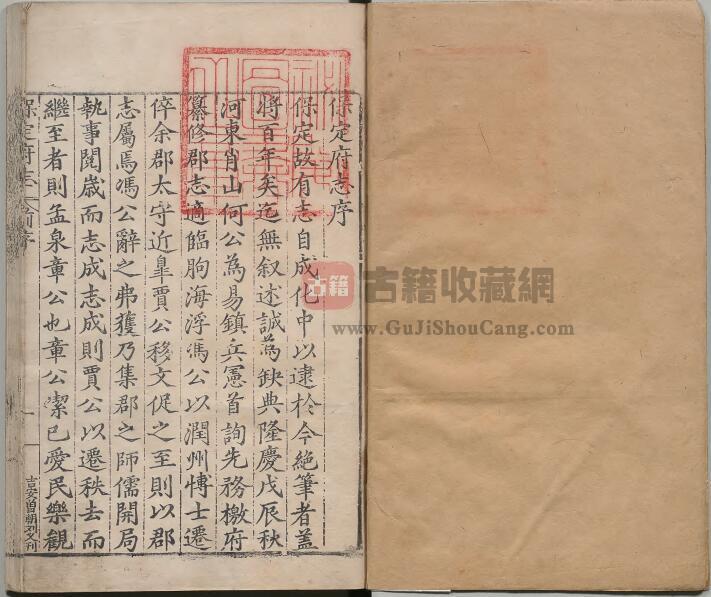 保定府志序
保定故有志自成化中以逮於今絶筆者蓋
將百年矣迄無叙述誠為缺典隆慶戊辰秋
河東肖山何公為易鎮兵憲首詢先務檄府
纂修郡志適臨朐海浮馮公以潤州愽士遷
倅余郡太守近臯賈公移文促之至則以郡
志屬焉馮公辭之弗獲乃集郡之師儒開局
執事閲歲而志成志成則賈公以遷秩去而
繼至者則孟泉章公也章公潔已愛民樂觀
保定府志
前序
一
吉安曾朝列文刊
古籍
古籍收藏網
www.GuJiShouCang.com